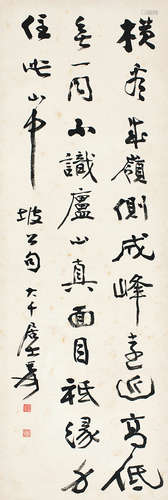 橫看成嶺側成峰遠近高低
無一同不識廬山真面目祇緣身
在此山中 坡公句 大千居士爰